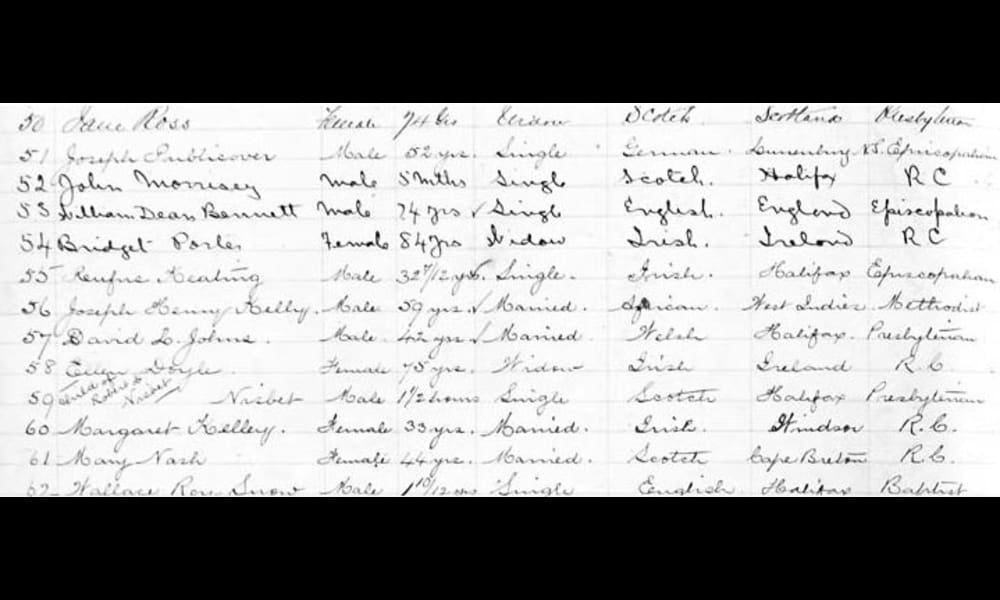 50 Jane Ross Female 74 yrs Widow Scotch Scotland Presbyterian
51 Joseph Publicover Male 52 yrs. Single German Lunenburg N.S. Episcopalian
52 John Morrisey Male 5 Mths Single Scotch. Halifax R C
53 William Dean Bennett Male 74 yrs √ Single English. England Episcopalian
54 Bridget Porter Female 84 yrs Widow Irish. Ireland R C
55 Reufus Keating Male 32 7/12 yrs. Single. Irish. Halifax Episcopalian
56 Joseph Henry Kelly. Male 59 yrs. √ Married. African. West Indies Methodist
57 David L. Johns. Male. 42 yrs √ Married Welsh Halifax. Presbyterian
58 Ellen Doyle. Female 75 yrs. Widow Irish Ireland R. C.
59 Child of Robert Nisbet Nisbet Male 1/2 hours Single Scotch Halifax Presbyterian
60 Margaret Kelley. Female 33 yrs. Married. Irish. Windsor R. C.
61 Mary Nash Female 44 yrs. Married. Scotch Cape Breton R. C.
62 Wallace Roy Snow Male 1 10/12 Single English Halifax Baptist